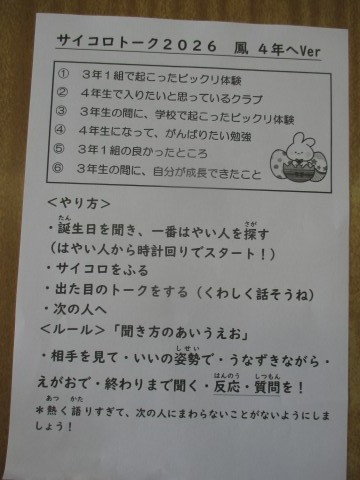 サイコロトーク２０２６　鳳　４年へVer
① ３年１組で起こったビックリ体験
② ４年生で入りたいと思っているクラブ
③ ３年生の間に、学校で起こったビックリ体験
④ ４年生になって、がんばりたい勉強
⑤ ３年１組の良かったところ
⑥ ３年生の間に、自分が成長できたこと
＜やり方＞
たん　さが
・誕生日を聞き、一番はやい人を探す
（はやい人から時計回りでスタート！）
・サイコロをふる
・出た目のトークをする（くわしく話そうね）
・次の人へ
＜ルール＞「聞き方のあいうえお」
しせい
・相手を見て・いいの姿勢で・うなずきながら・
はんのう　しつもん
えがおで・終わりまで聞く・反応・質問を！
あつ　かた
＊熱く語りすぎて、次の人にまわらないことがないようにしま
しょう！